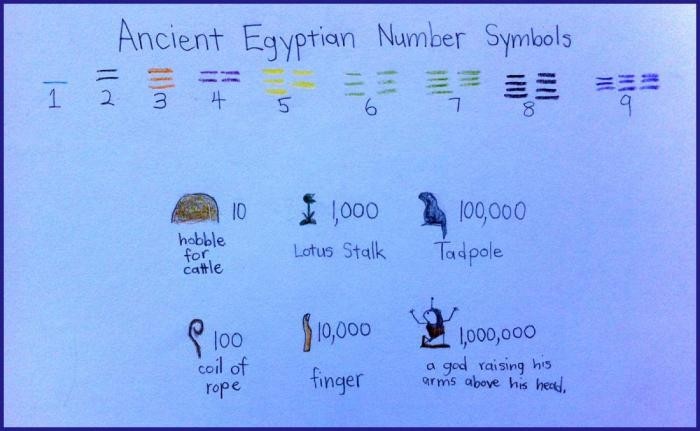 Ancient Egyptian Number Symbols
1 2 3 4 5 6 7 8 9
10 1,000 100,000
hobble
for
cattle
Lotus Stalk
Tadpole
100 10,000 1,000,000
coil of
rope
finger
a god raising his
arms above his head.